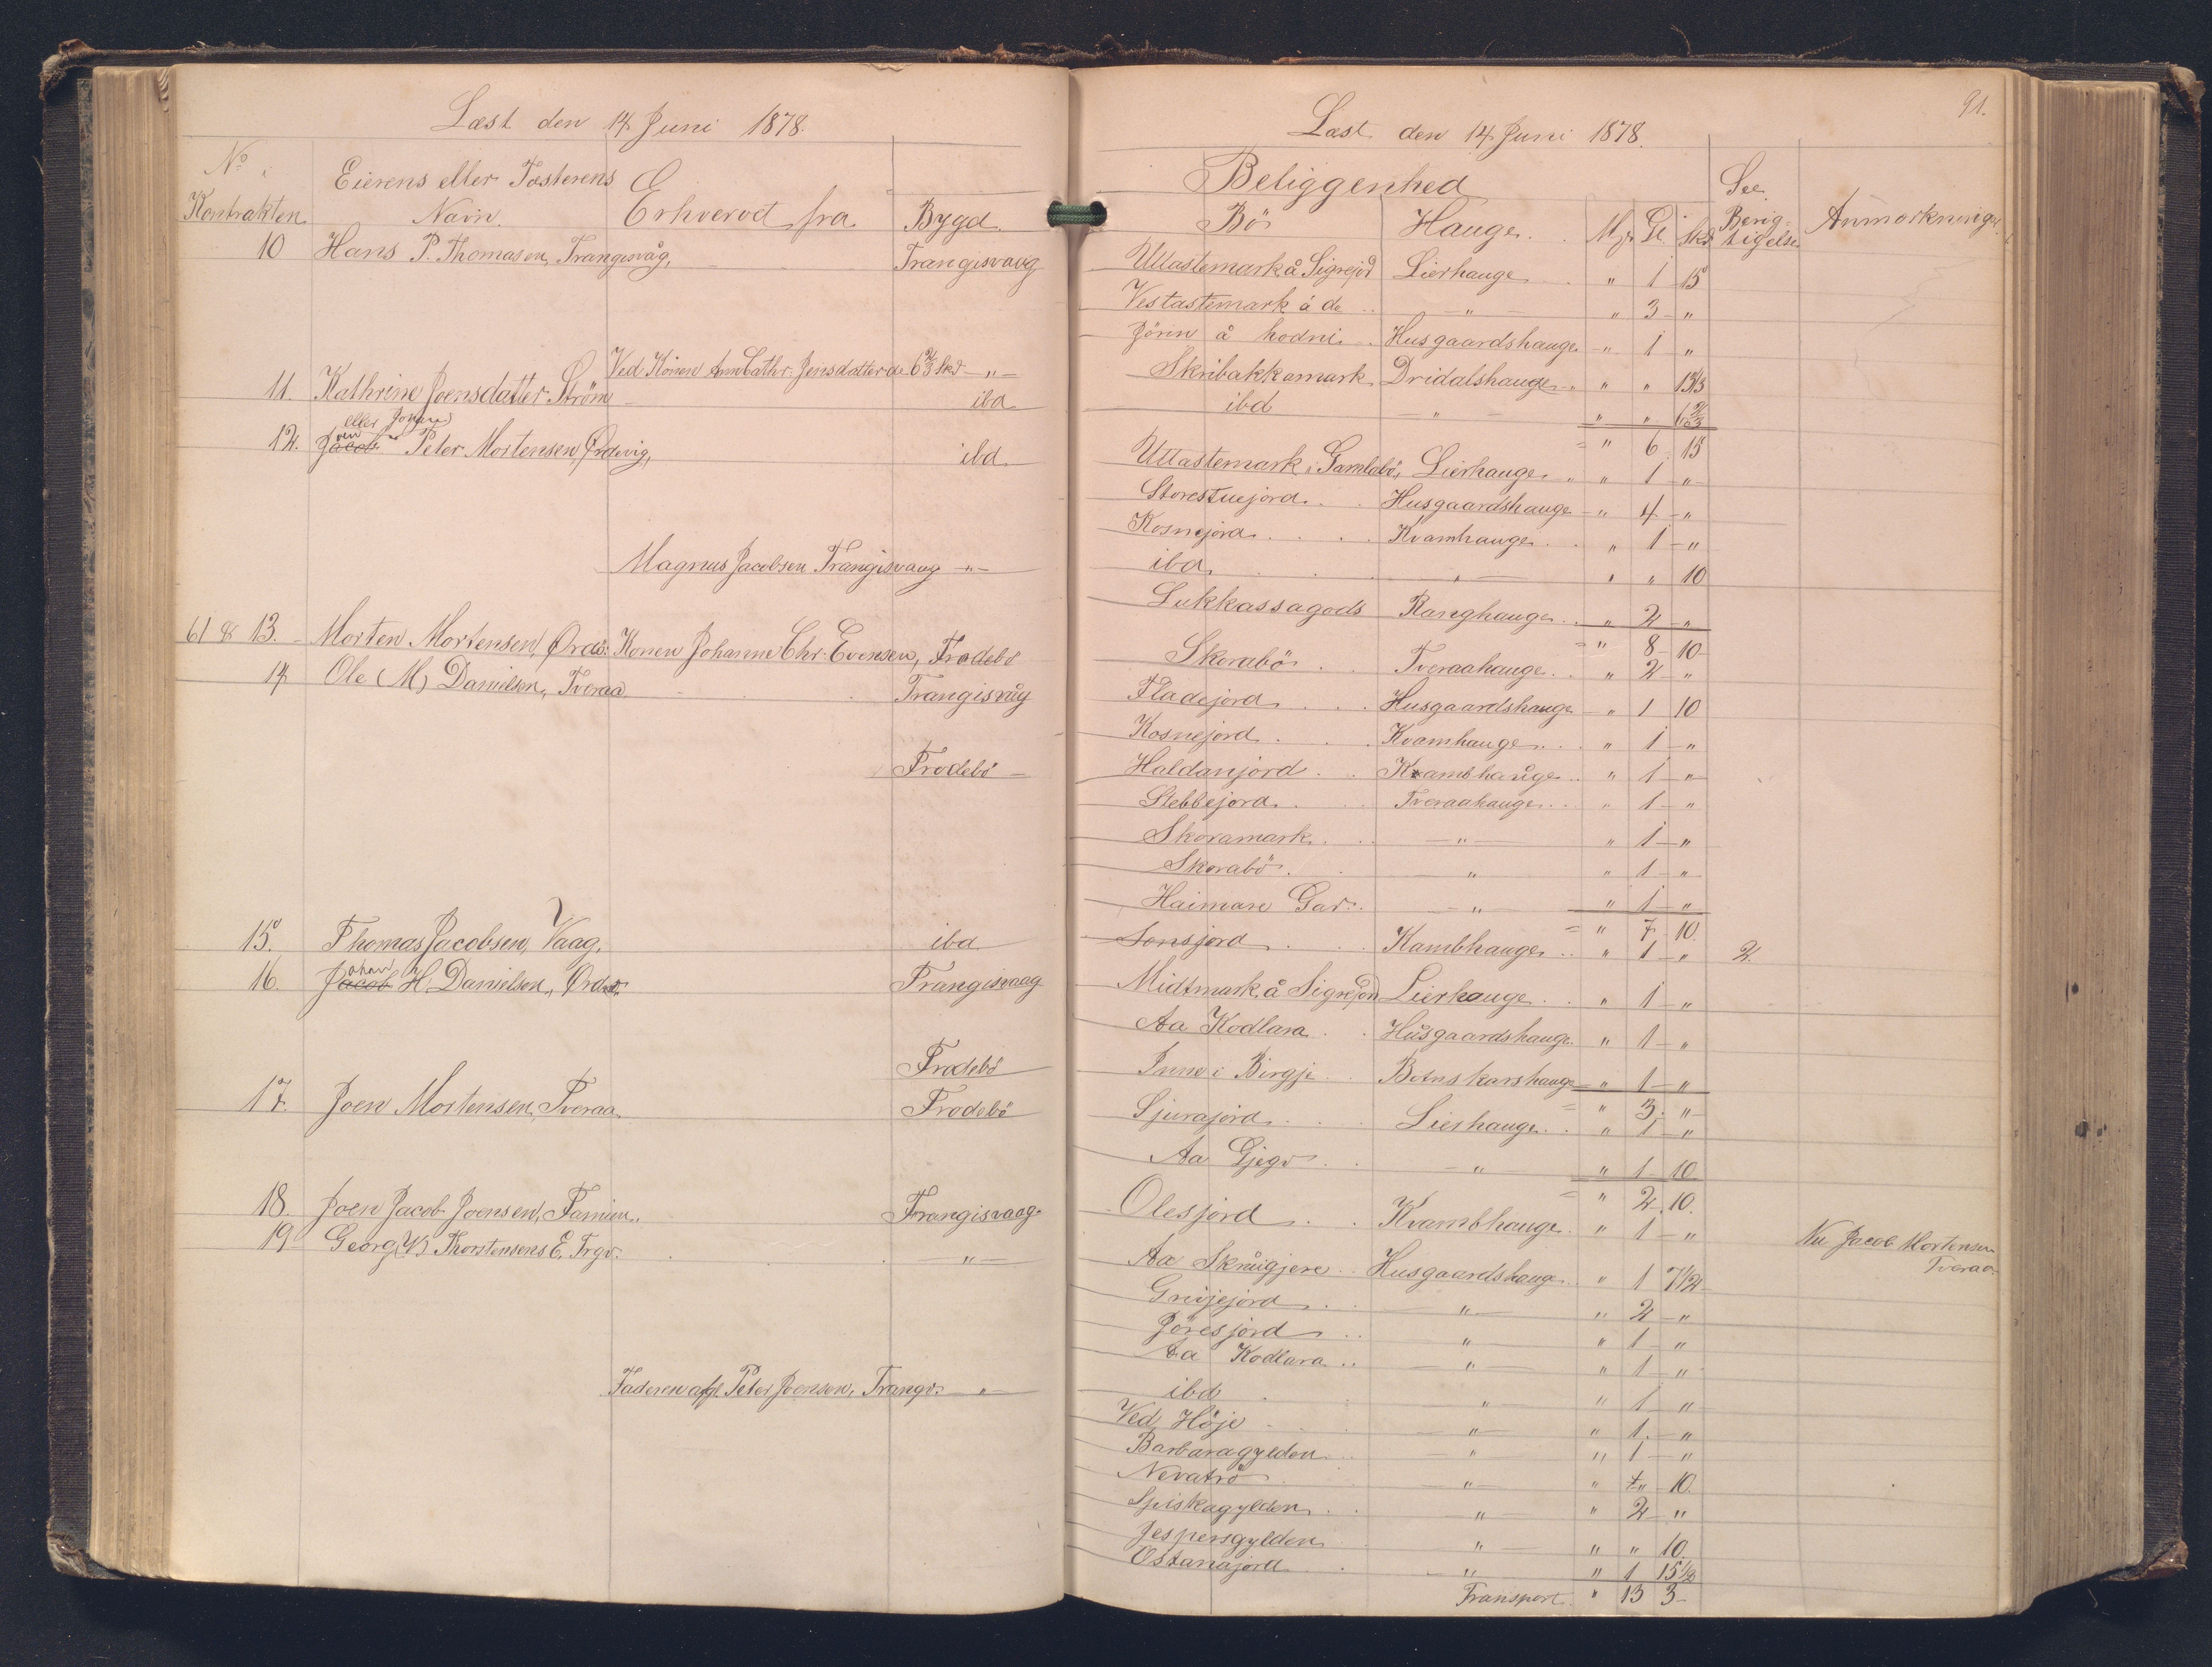 Læst den 14 Juni 1878.
No i Kontrakten
Eierens eller Fæsterens Navn.
Erhvervet fra
Bygd
10 Hans P. Thomasen, Trangisvåg, Trangisvaag
Ved Konen Ann Cathr. Jensdatter de 6 2/3 Skd — " —
11. Kathrine Joensdatter Ström ibd
eller Johan
12. Jacob oen Peter Mortensen, Ördevig, ibd
Magnus Jacobsen Trangisvaag — " —
61 & 13. Morten Mortensen, Ørdv: Konen Johanne Chr. Evensen, Frodebö
14 Ole (M) Danielsen, Tveraa Trangisvåg
Frodebö
15. Thomas Jacobsen, Vaag, ibd
16. Jacob ohan H. Danielsen, Ørdv: Trangisvaag
Frodebö
17. Joen Mortensen, Tveraa Frodebö
18. Joen Jacob Joensen, Famien. Trangisvaag.
19 Georg (V) Thorstensens E. Trgv: — " —
Faderen afg. Peter Joensen, Trangv: — " —
91.
Læst den 14 Juni 1878.
Beliggenhed
Bö Hauge. Mk Gl. Skd
See Berigtigelse
Anmærkninger.
Uttastemark å Sigrejord Lierhauge " 1 15
Vestastemark å de — " — " 3 "
Jörin å hodni Husgaardshauge " 1 "
Skribakkamark Dridalshauge " " 13 1/3
ibd — " — " " 6 2/3
= " 6 15
Uttastemark i Gamlabö, Lierhauge " 1 "
Storestuejord Husgaardshauge " 4 "
Kosnejord Kvamhauge " 1 "
ibd. — " — " " 10
Lukkassagods Ranghauge " 2 "
= " 8 10
Skorabö Tveraahauge " 2 "
Fladejord Husgaardshauge " 1 10
Kosnejord Kvamhauge " 1 "
Haldanjord Kvambhauge " 1 "
Stebbejord Tveraahauge " 1 "
Skoramark — " — " 1 "
Skorabö " " 1 "
Haimare Gar: — " — " 1 "
= " 7 10.
Sonsjord Kambhauge " 1 " 2.
Midtmark å Sigrejord Lierhauge " 1 "
Aa Kodlara Husgaardshauge " 1 "
Inne i Birgji Botnskarshauge " 1 "
= " 3 "
Sjurajord Lierhauge " 1 "
Aa Gjegv — " — " 1 10
= " 2 10.
Olesjord Kvambhauge " 1 " Nu Jacob Mortensen Tveraa
Aa Skrugjere Husgaardshauge " 1 7 1/2
Griojejord — " — " 2 "
Jöresjord " " 1 "
Aa Kodlara — " — " 1 "
ibd " " 1 "
Ved Höje — " — " 1 "
Barbaragylden " " 1 "
Nevatrö — " — " " 10.
Spiskagylden — " — " 2 "
Jespersgylden " " " 10.
Ostanajord — " — " 1 15 1/2
Transport " 13 3